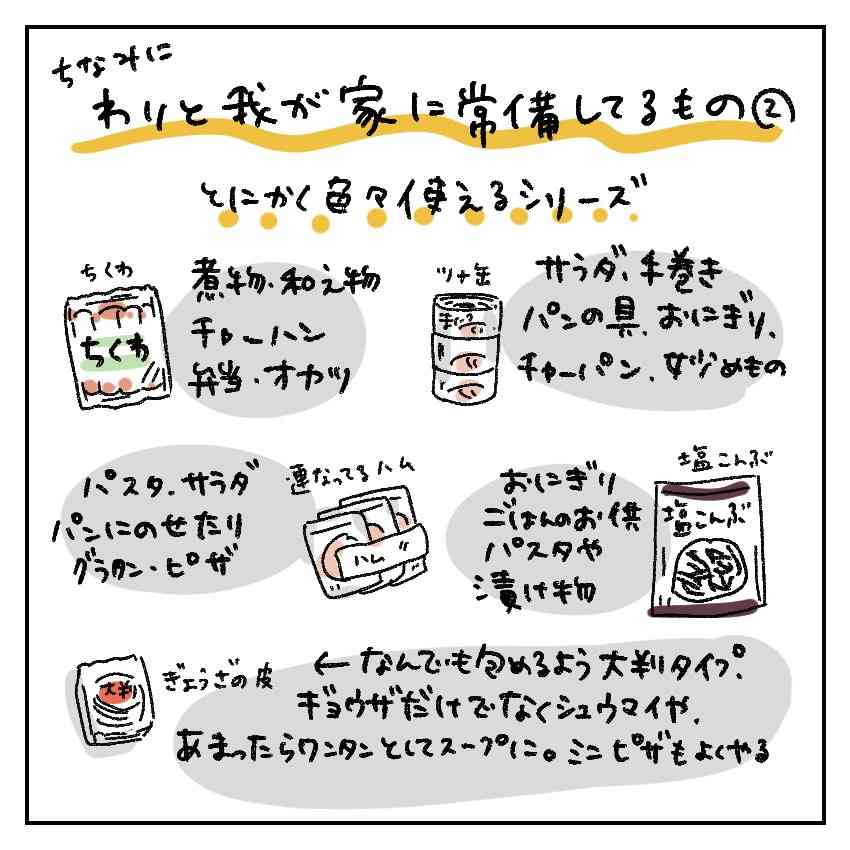 ちなみに
わりと我が家に常備してるもの②
とにかく色々使えるシリーズ
ちくわ
ちくわ
煮物・和え物
チャーハン
弁当・オカヅ
ツナ缶
サラダ、手巻き
パンの具、おにぎり、
チャーパン、炒めもの
パスタ、サラダ
パンにのせたり
グラタン・ピザ
連なってるハム
ハム
おにぎり
ごはんのお供
パスタや
漬け物
塩こんぶ
塩こんぶ
大判
ぎょうざの皮
←なんでも包めるよう大判タイプ。
ギョウザだけでなくシュウマイや、
あまったらワンタンとしてスープに。ミニピザもよくやる